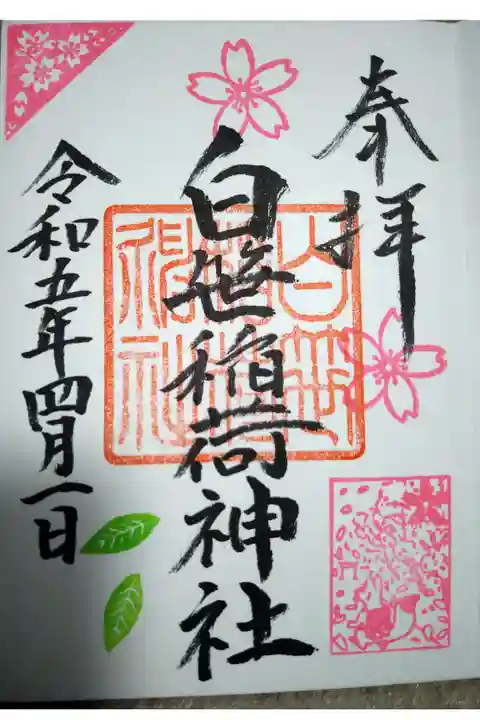 奉拝
白笹稲荷神社
令和五年四月一日